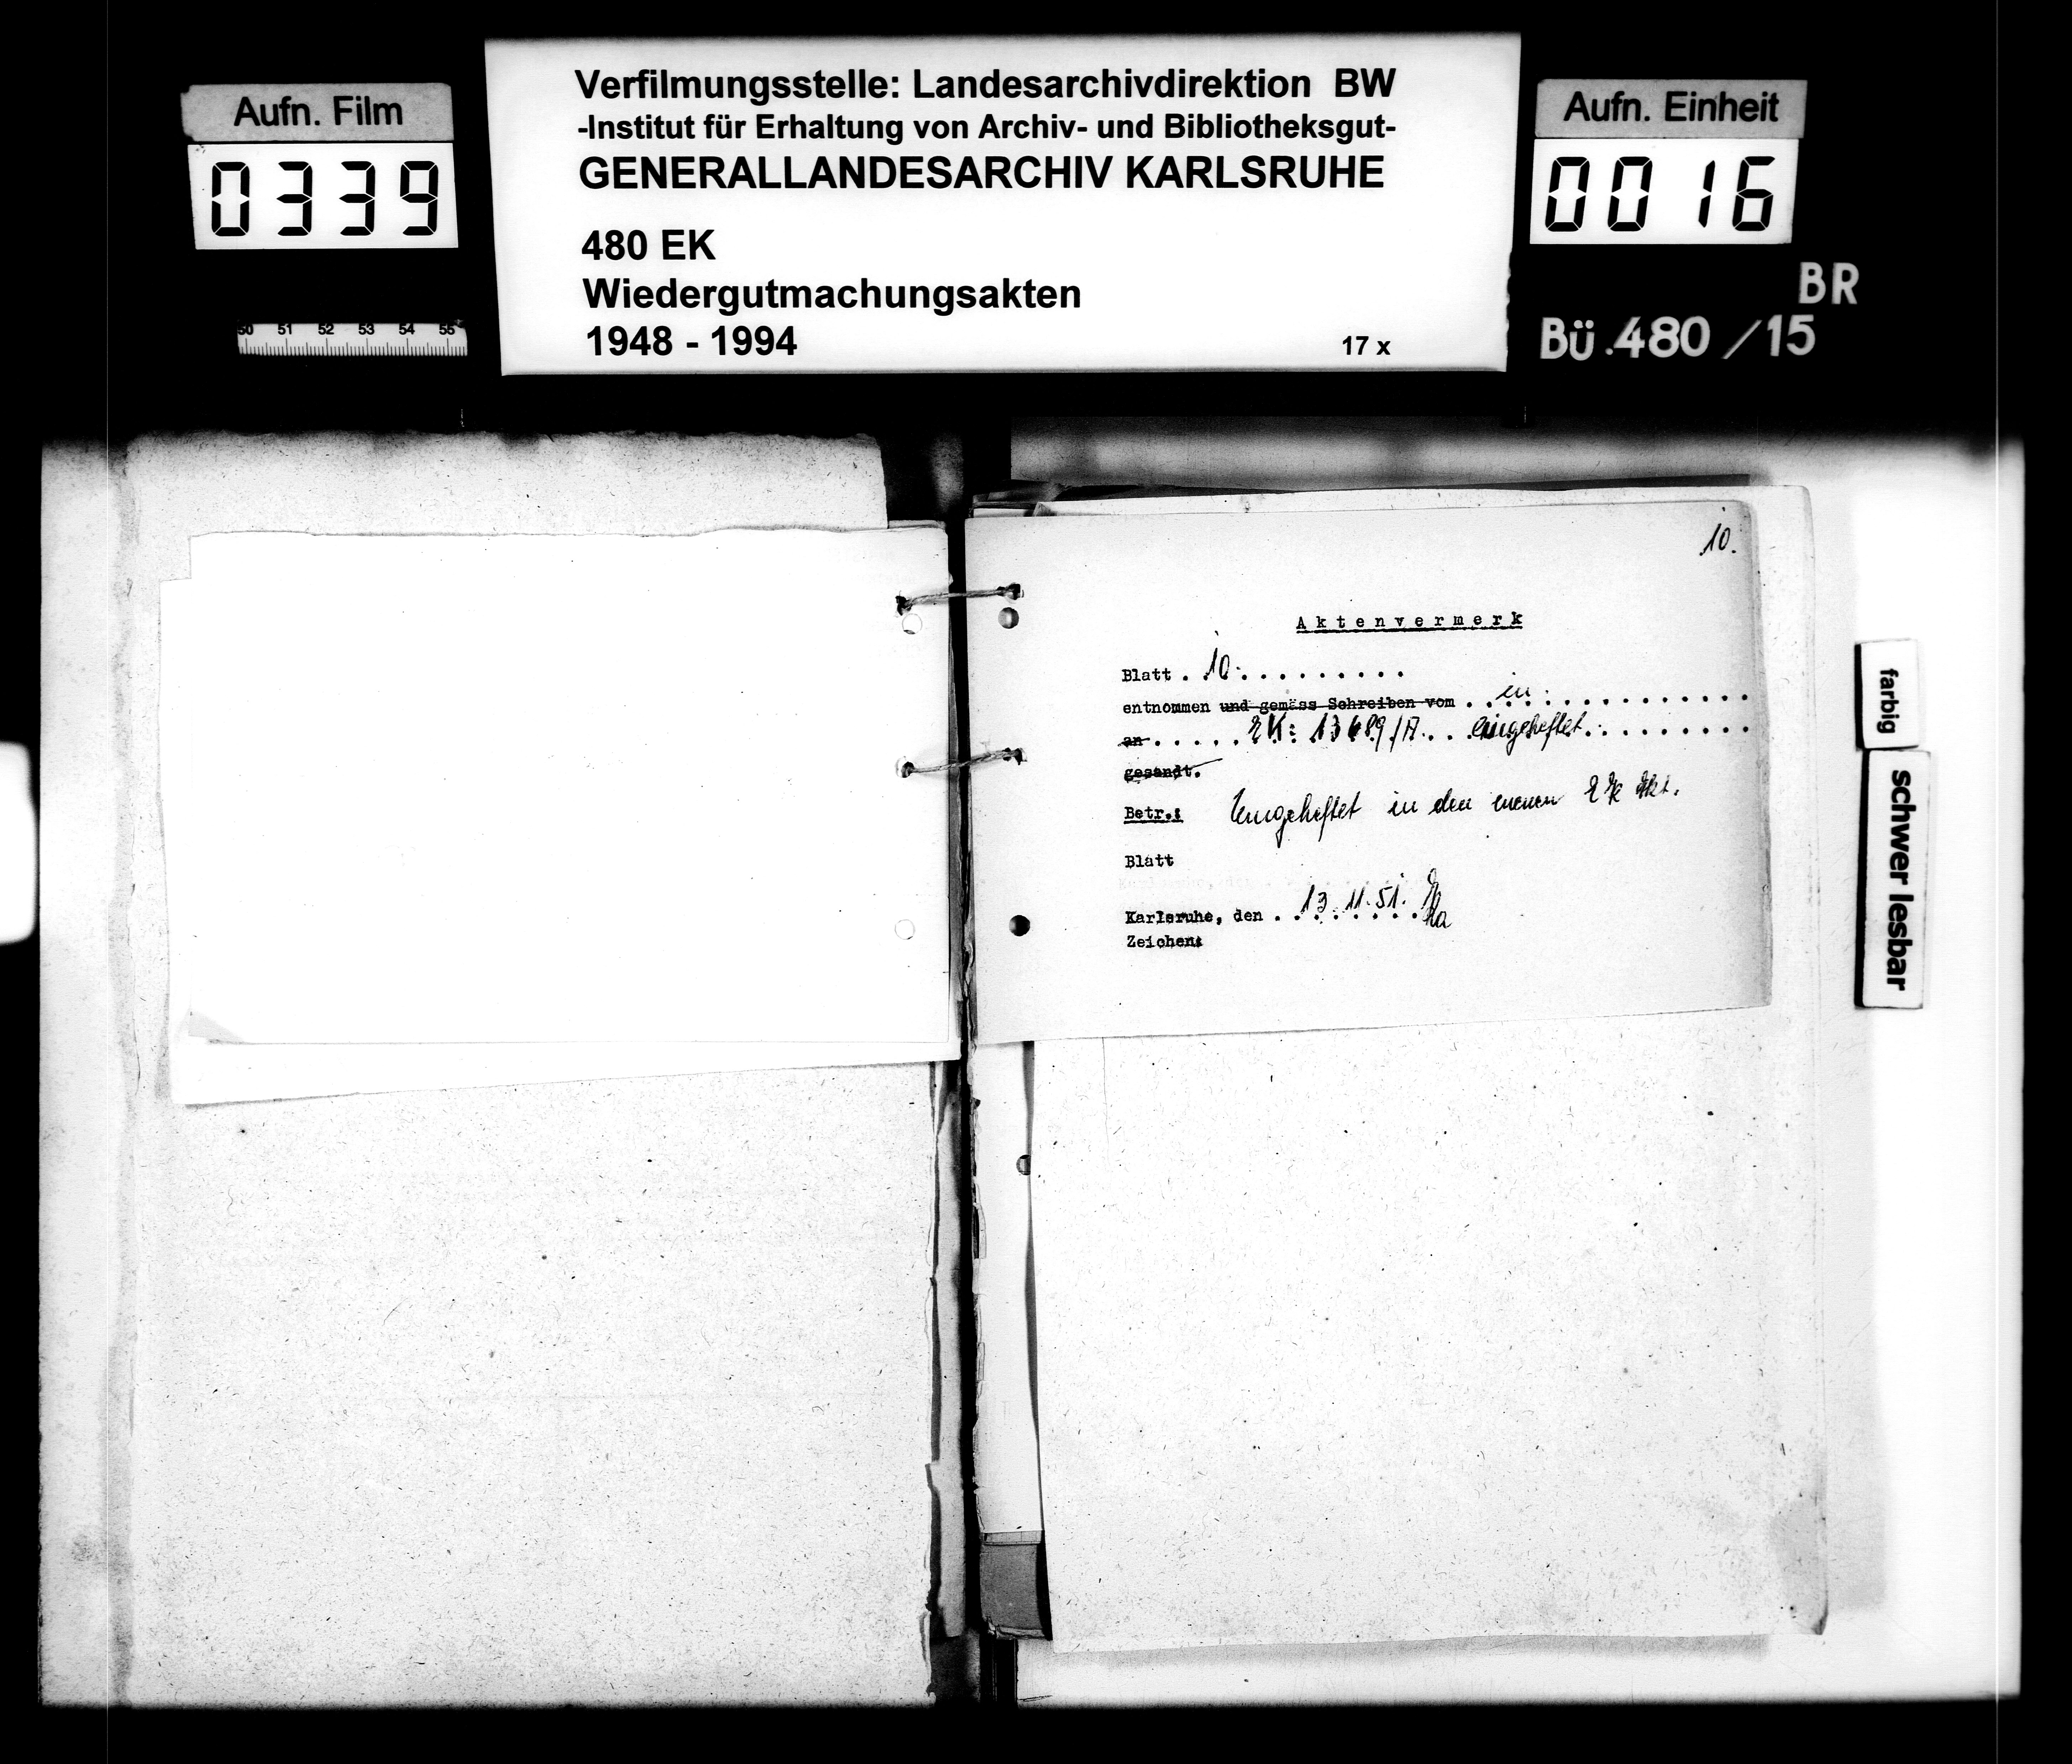 Aufn. Film
0339
Verfilmungsstelle: Landesarchivdirektion BW
-Institut für Erhaltung von Archiv- und Bibliotheksgut-
GENERALLANDESARCHIV KARLSRUHE
480 EK
Wiedergutmachungsakten
1948 - 1994
17 x
Aufn. Einheit
0016
BR
Bü.480/15
50 51 52 53 54 55
10.
Aktenvermerk
Blatt . 10. . . . . . . . . .
entnommen und gemäss Schreiben vom . . in . . . . . . . . . . . .
an . . . . . EK: 13689/A. . . eingeheftet . . . . . . . . . .
gesandt.
Betr.: Eingeheftet in den neuen EK Akt.
Blatt
Karlsruhe, den . 13.11.51.
Zeichen:
farbig
schwer lesbar